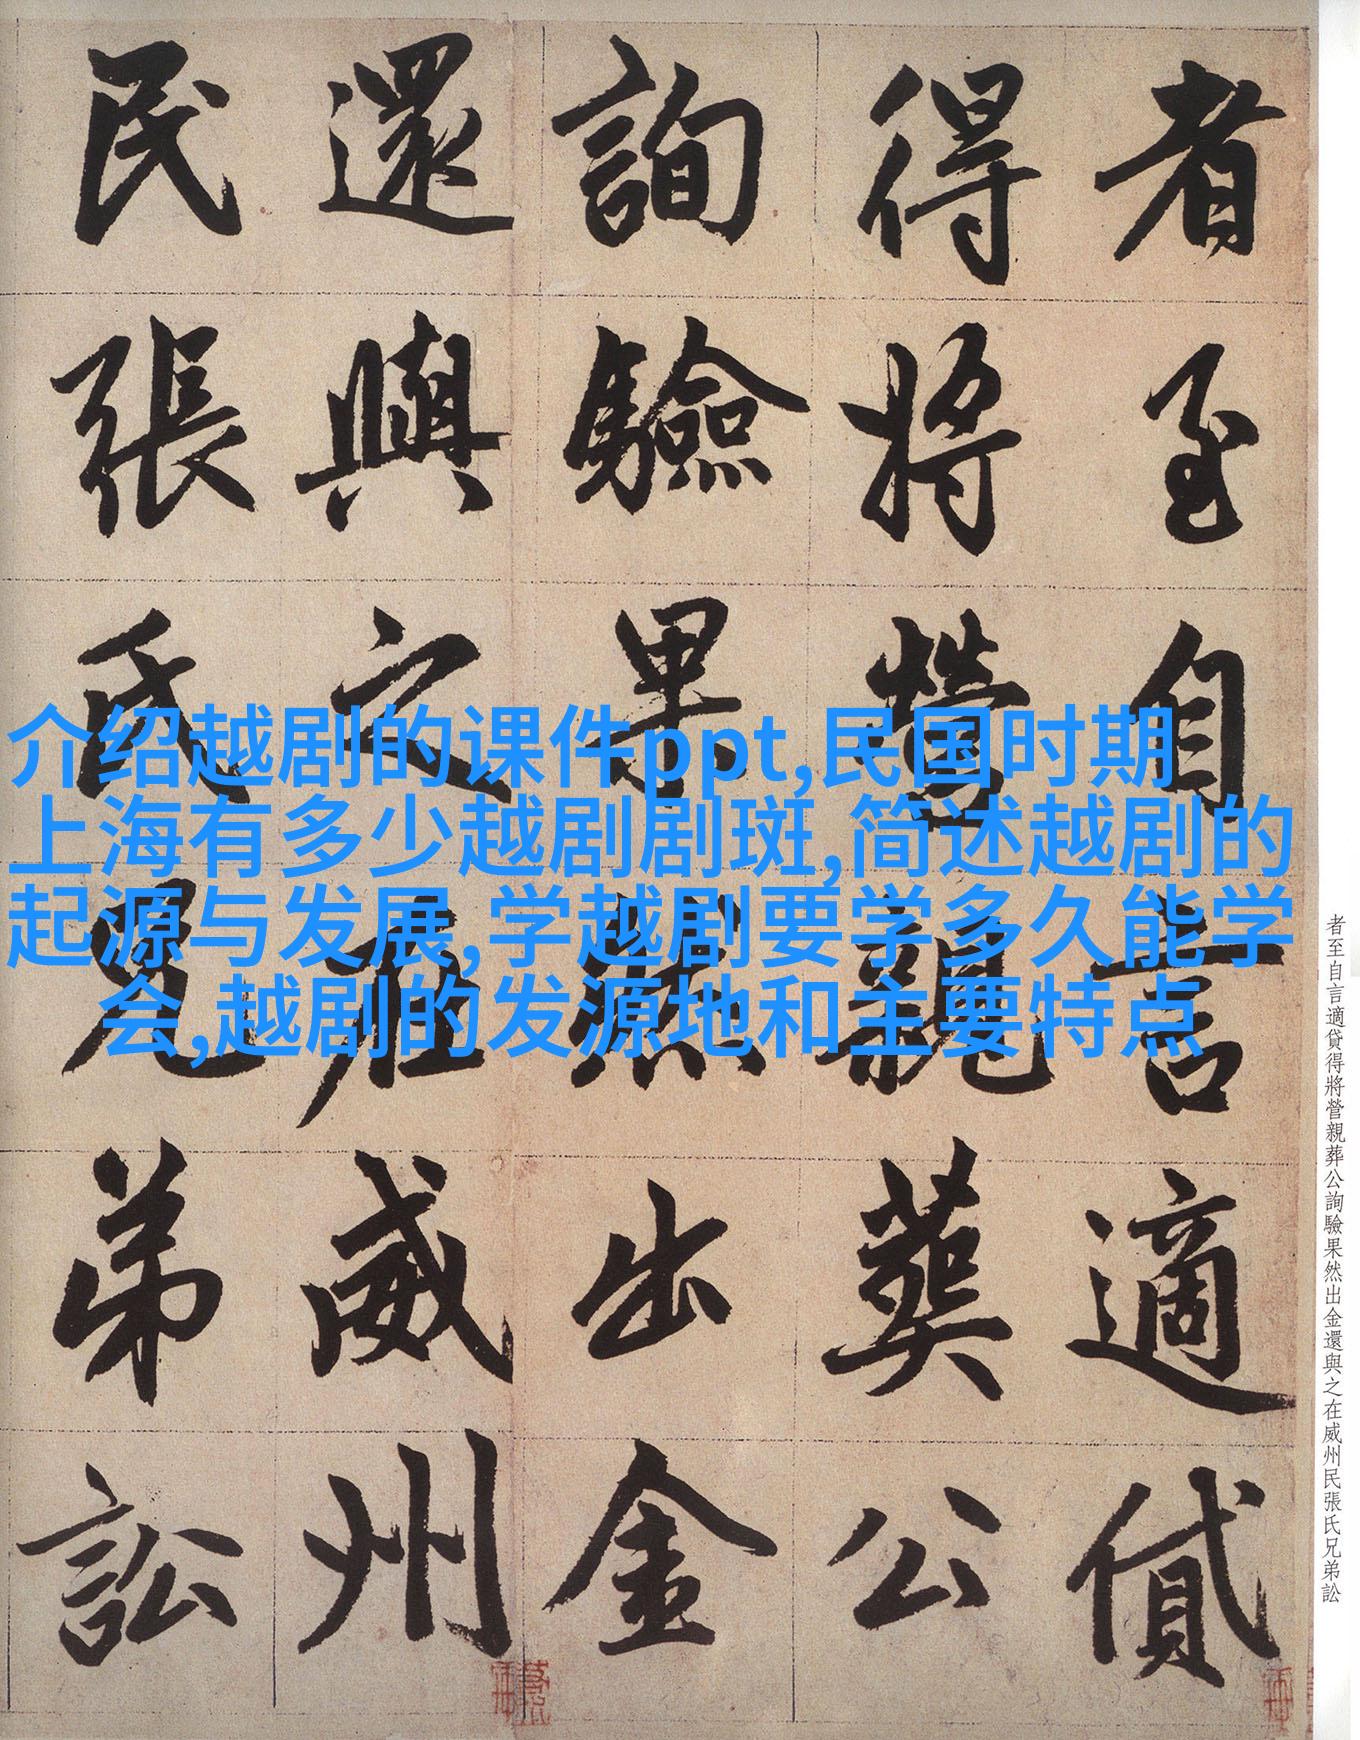 者至自言適貸
得將營親葬公
詢驗果然出金
還與之在威州
民張氏兄弟訟
介绍越剧的课件ppt,民国时期
上海有多少越剧剧斑,简述越剧的
起源与发展,学越剧要学多久能学
会,越剧的发源地和主要特点
者至自言適貸得將營親葬公詢驗果然出金還與之在威州民張氏兄弟訟